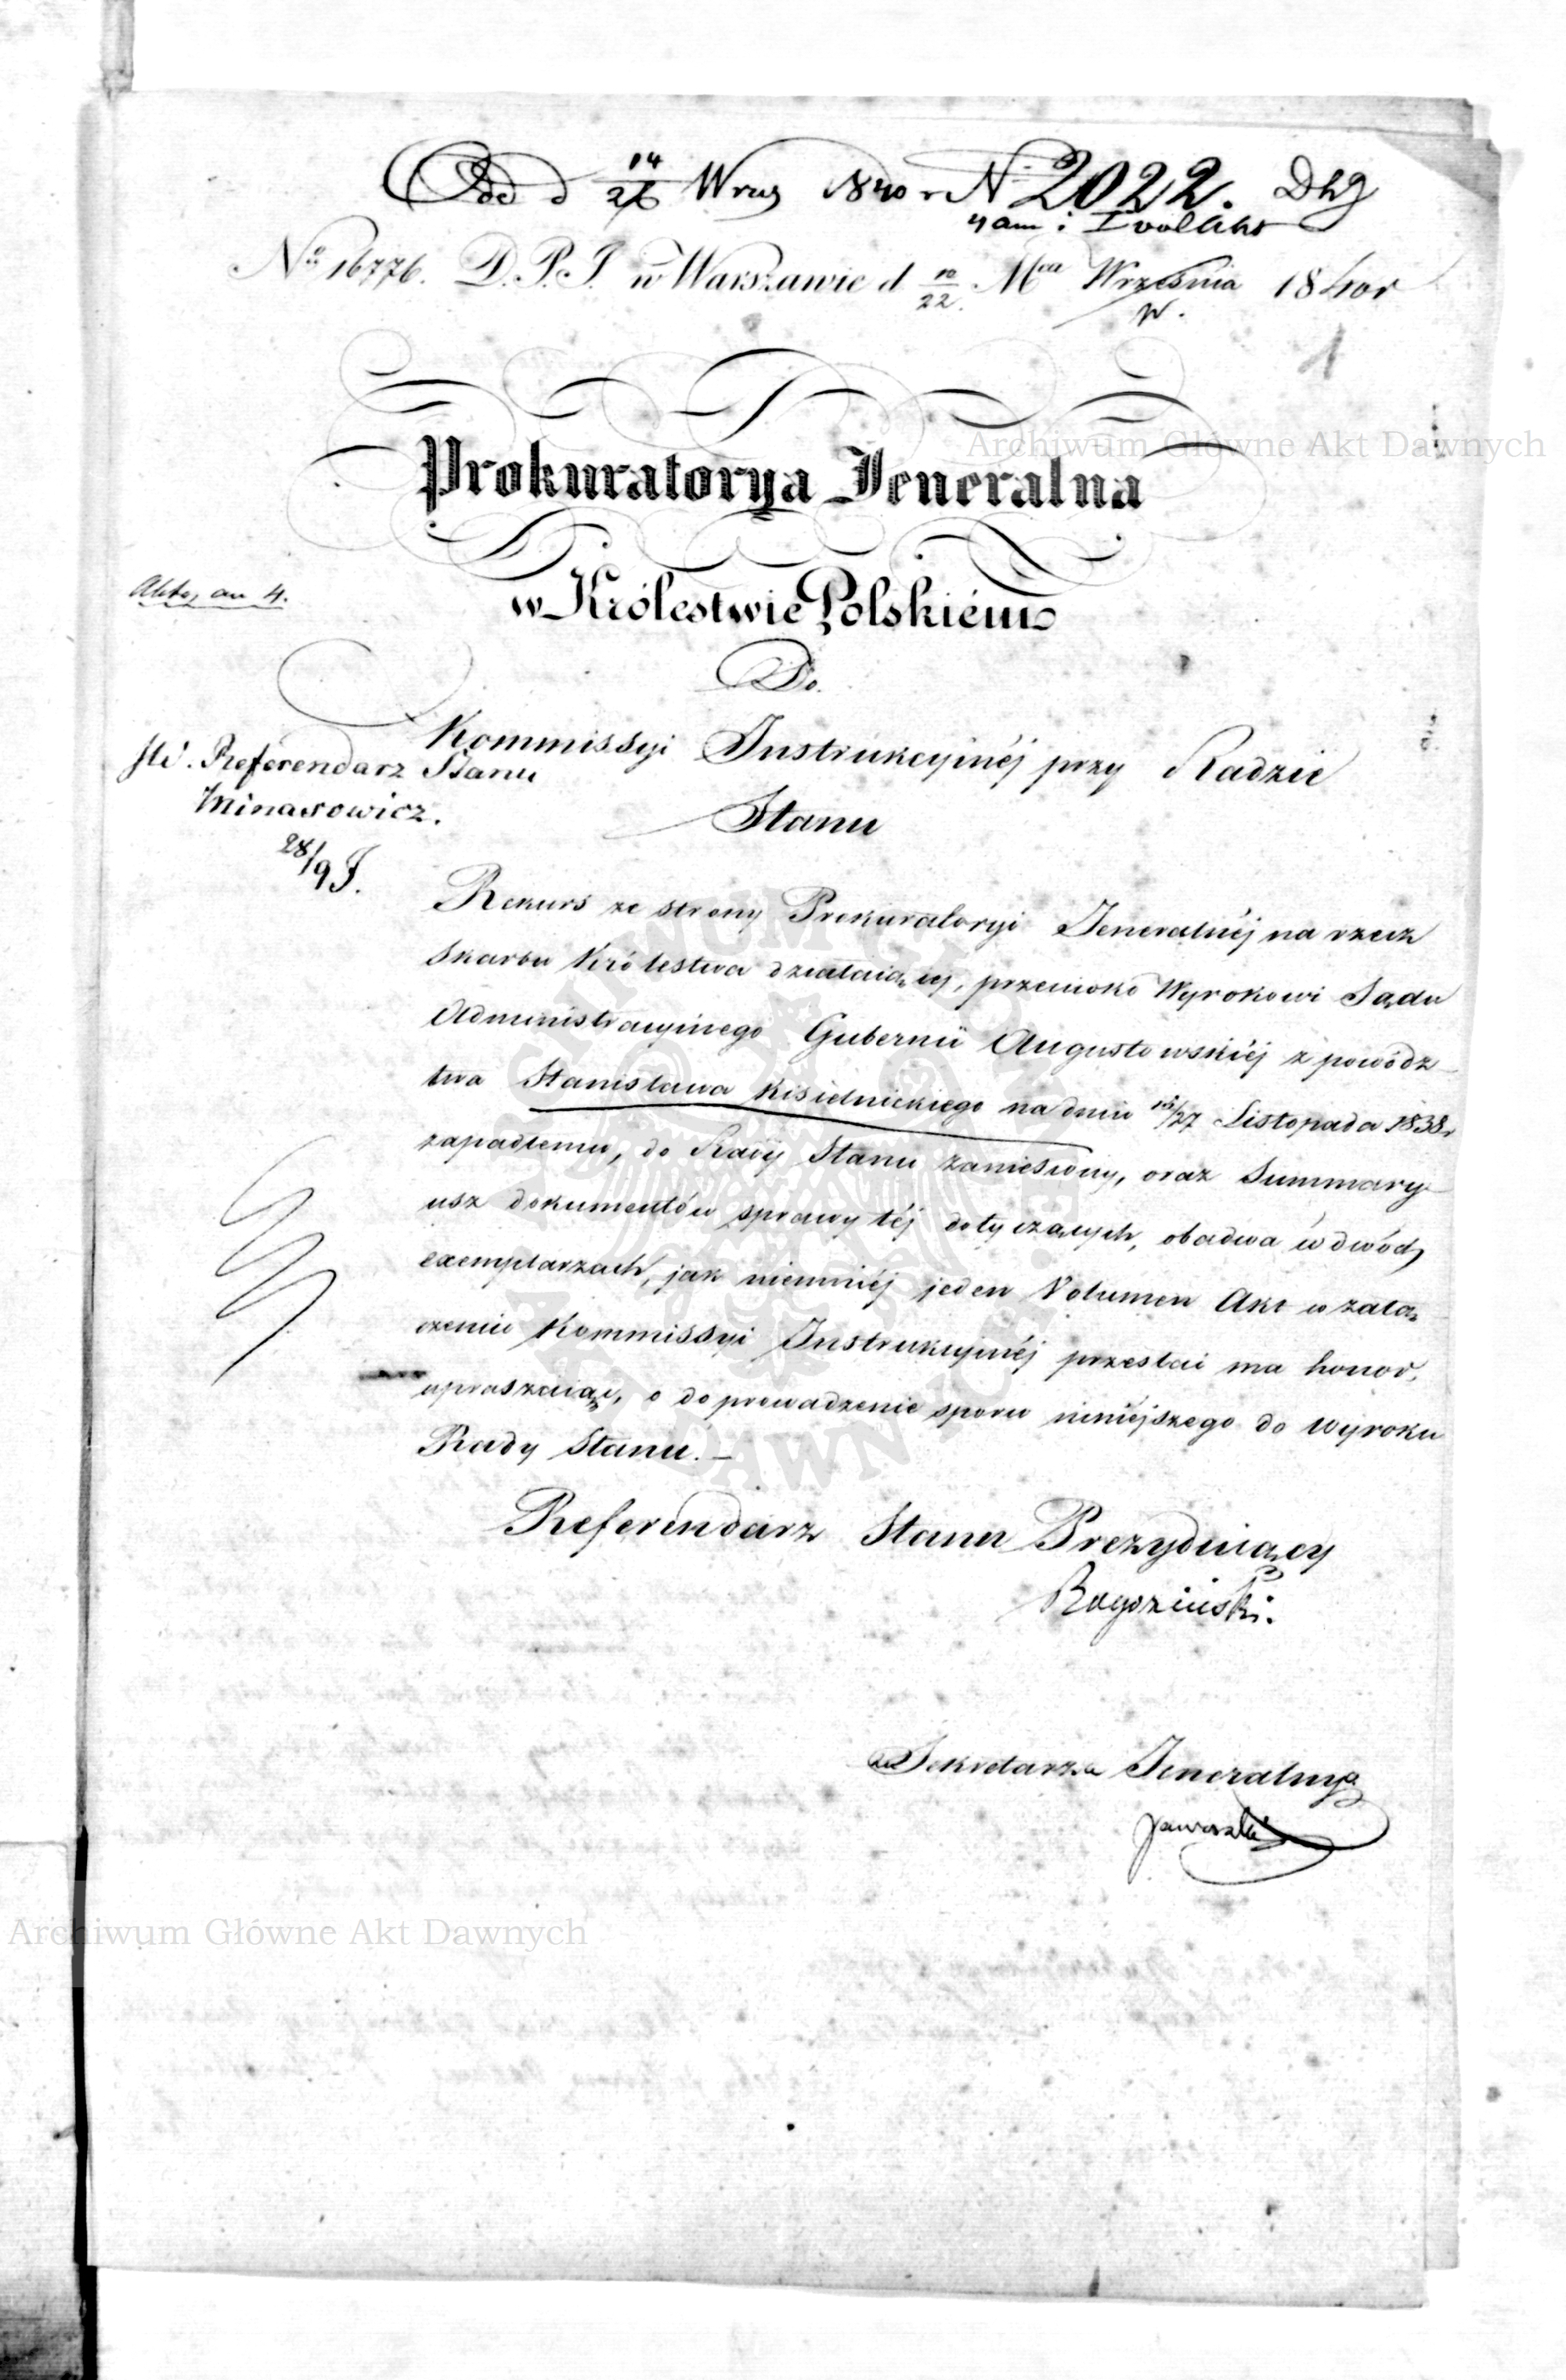 Odd d 14/26 Wrzes 1840 r N. 2022. Dhg
4 ann: I vol Akt
No 16776. D.P.J. w Warszawie d 10/22. Mca Września 1840r
1
Prokuratorya Jeneralna
Akta, an 4.
w Królestwie Polskiém
Do.
Kommissyi Instrukcyinéj przy Radzie
Stanu
JW. Referendarz Stanu
Minasowicz.
28/9 J.
Rekurs ze strony Prokuratoryi Jeneralnéj na rzecz
Skarbu Królestwa działaiącey, przeciwko Wyrokowi Sądu
Administracyinego Gubernii Augustowskiéj z powódz-
twa Stanisława Kisielnickiego na dniu 15/27 Listopada 1838r
zapadłemu, do Rady Stanu zaniesiony, oraz Summary-
usz dokumentów sprawy téj dotyczących, obadwa w dwóch
exemplarzach, jak niemniéj jeden Volumen Akt w załą-
czeniu Kommissyi Instrukcyinéj przesłać ma honor,
upraszaiąc, o doprowadzenie sporu niniejszego do wyroku
Rady Stanu. —
Referendarz Stanu Prezyduiący
Rogoziński.
za Sekretarza Jeneralnego
Archiwum Główne Akt Dawnych
Archiwum Główne Akt Dawnych
ARCHIWUM GŁÓWNE AKT DAWNYCH